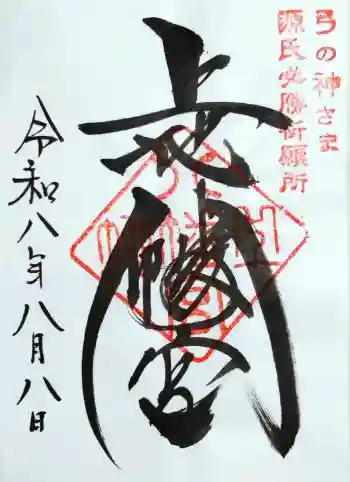 弓の神さま
源氏必勝祈願所
上地八幡宮
令和八年八月八日